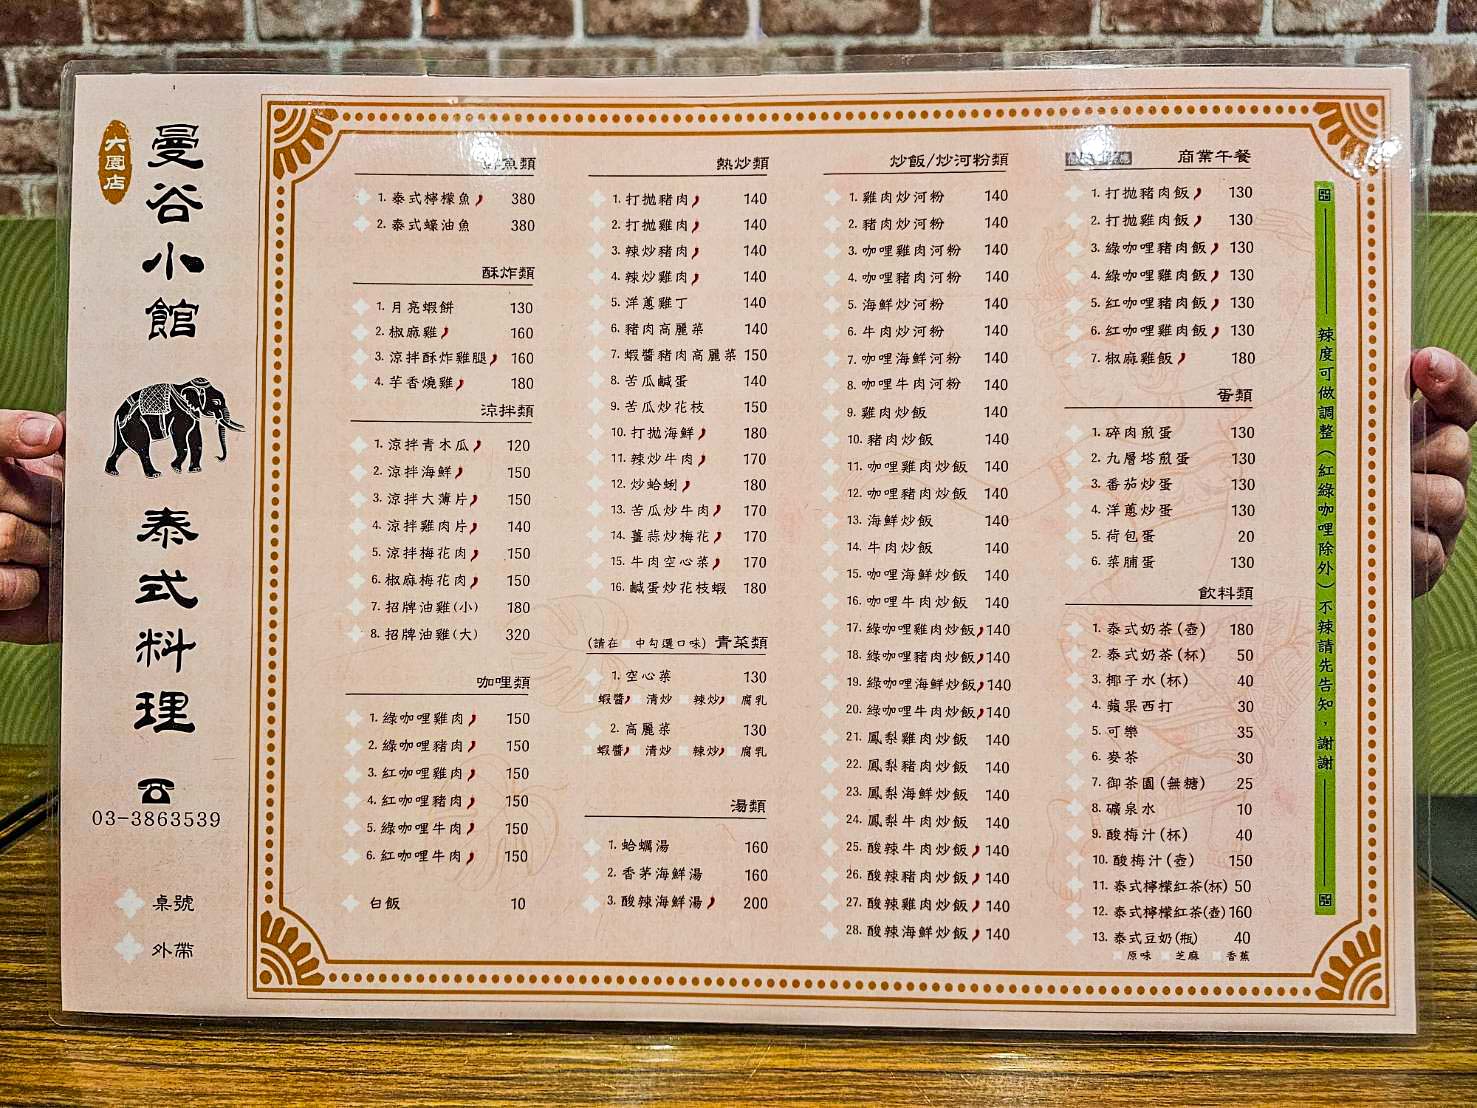 大園店
曼谷小館
泰式料理
03-3863539
桌號
外帶
魚類
1. 泰式檸檬魚 380
2. 泰式蠔油魚 380
酥炸類
1. 月亮蝦餅 130
2. 椒麻雞 160
3. 涼拌酥炸雞腿 160
4. 芋香燒雞 180
涼拌類
1. 涼拌青木瓜 120
2. 涼拌海鮮 150
3. 涼拌大薄片 150
4. 涼拌雞肉片 140
5. 涼拌梅花肉 150
6. 椒麻梅花肉 150
7. 招牌油雞(小) 180
8. 招牌油雞(大) 320
咖哩類
1. 綠咖哩雞肉 150
2. 綠咖哩豬肉 150
3. 紅咖哩雞肉 150
4. 紅咖哩豬肉 150
5. 綠咖哩牛肉 150
6. 紅咖哩牛肉 150
白飯 10
熱炒類
1. 打拋豬肉 140
2. 打拋雞肉 140
3. 辣炒豬肉 140
4. 辣炒雞肉 140
5. 洋蔥雞丁 140
6. 豬肉高麗菜 140
7. 蝦醬豬肉高麗菜 150
8. 苦瓜鹹蛋 140
9. 苦瓜炒花枝 150
10. 打拋海鮮 180
11. 辣炒牛肉 170
12. 炒蛤蜊 180
13. 苦瓜炒牛肉 170
14. 薑蒜炒梅花 170
15. 牛肉空心菜 170
16. 鹹蛋炒花枝蝦 180
(請在 中勾選口味) 青菜類
1. 空心菜 130
蝦醬 清炒 辣炒 腐乳
2. 高麗菜 130
蝦醬 清炒 辣炒 腐乳
湯類
1. 蛤蠣湯 160
2. 香茅海鮮湯 160
3. 酸辣海鮮湯 200
炒飯/炒河粉類
1. 雞肉炒河粉 140
2. 豬肉炒河粉 140
3. 咖哩雞肉河粉 140
4. 咖哩豬肉河粉 140
5. 海鮮炒河粉 140
6. 牛肉炒河粉 140
7. 咖哩海鮮河粉 140
8. 咖哩牛肉河粉 140
9. 雞肉炒飯 140
10. 豬肉炒飯 140
11. 咖哩雞肉炒飯 140
12. 咖哩豬肉炒飯 140
13. 海鮮炒飯 140
14. 牛肉炒飯 140
15. 咖哩海鮮炒飯 140
16. 咖哩牛肉炒飯 140
17. 綠咖哩雞肉炒飯 140
18. 綠咖哩豬肉炒飯 140
19. 綠咖哩海鮮炒飯 140
20. 綠咖哩牛肉炒飯 140
21. 鳳梨雞肉炒飯 140
22. 鳳梨豬肉炒飯 140
23. 鳳梨海鮮炒飯 140
24. 鳳梨牛肉炒飯 140
25. 酸辣牛肉炒飯 140
26. 酸辣豬肉炒飯 140
27. 酸辣雞肉炒飯 140
28. 酸辣海鮮炒飯 140
商業午餐
1. 打拋豬肉飯 130
2. 打拋雞肉飯 130
3. 綠咖哩豬肉飯 130
4. 綠咖哩雞肉飯 130
5. 紅咖哩豬肉飯 130
6. 紅咖哩雞肉飯 130
7. 椒麻雞飯 180
蛋類
1. 碎肉煎蛋 130
2. 九層塔煎蛋 130
3. 番茄炒蛋 130
4. 洋蔥炒蛋 130
5. 荷包蛋 20
6. 菜脯蛋 130
飲料類
1. 泰式奶茶(壺) 180
2. 泰式奶茶(杯) 50
3. 椰子水(杯) 40
4. 蘋果西打 30
5. 可樂 35
6. 麥茶 30
7. 御茶園(無糖) 25
8. 礦泉水 10
9. 酸梅汁(杯) 40
10. 酸梅汁(壺) 150
11. 泰式檸檬紅茶(杯) 50
12. 泰式檸檬紅茶(壺) 160
13. 泰式豆奶(瓶) 40
原味 芝麻 香蕉
辣度可做調整(紅綠咖哩除外)不辣請先告知,謝謝